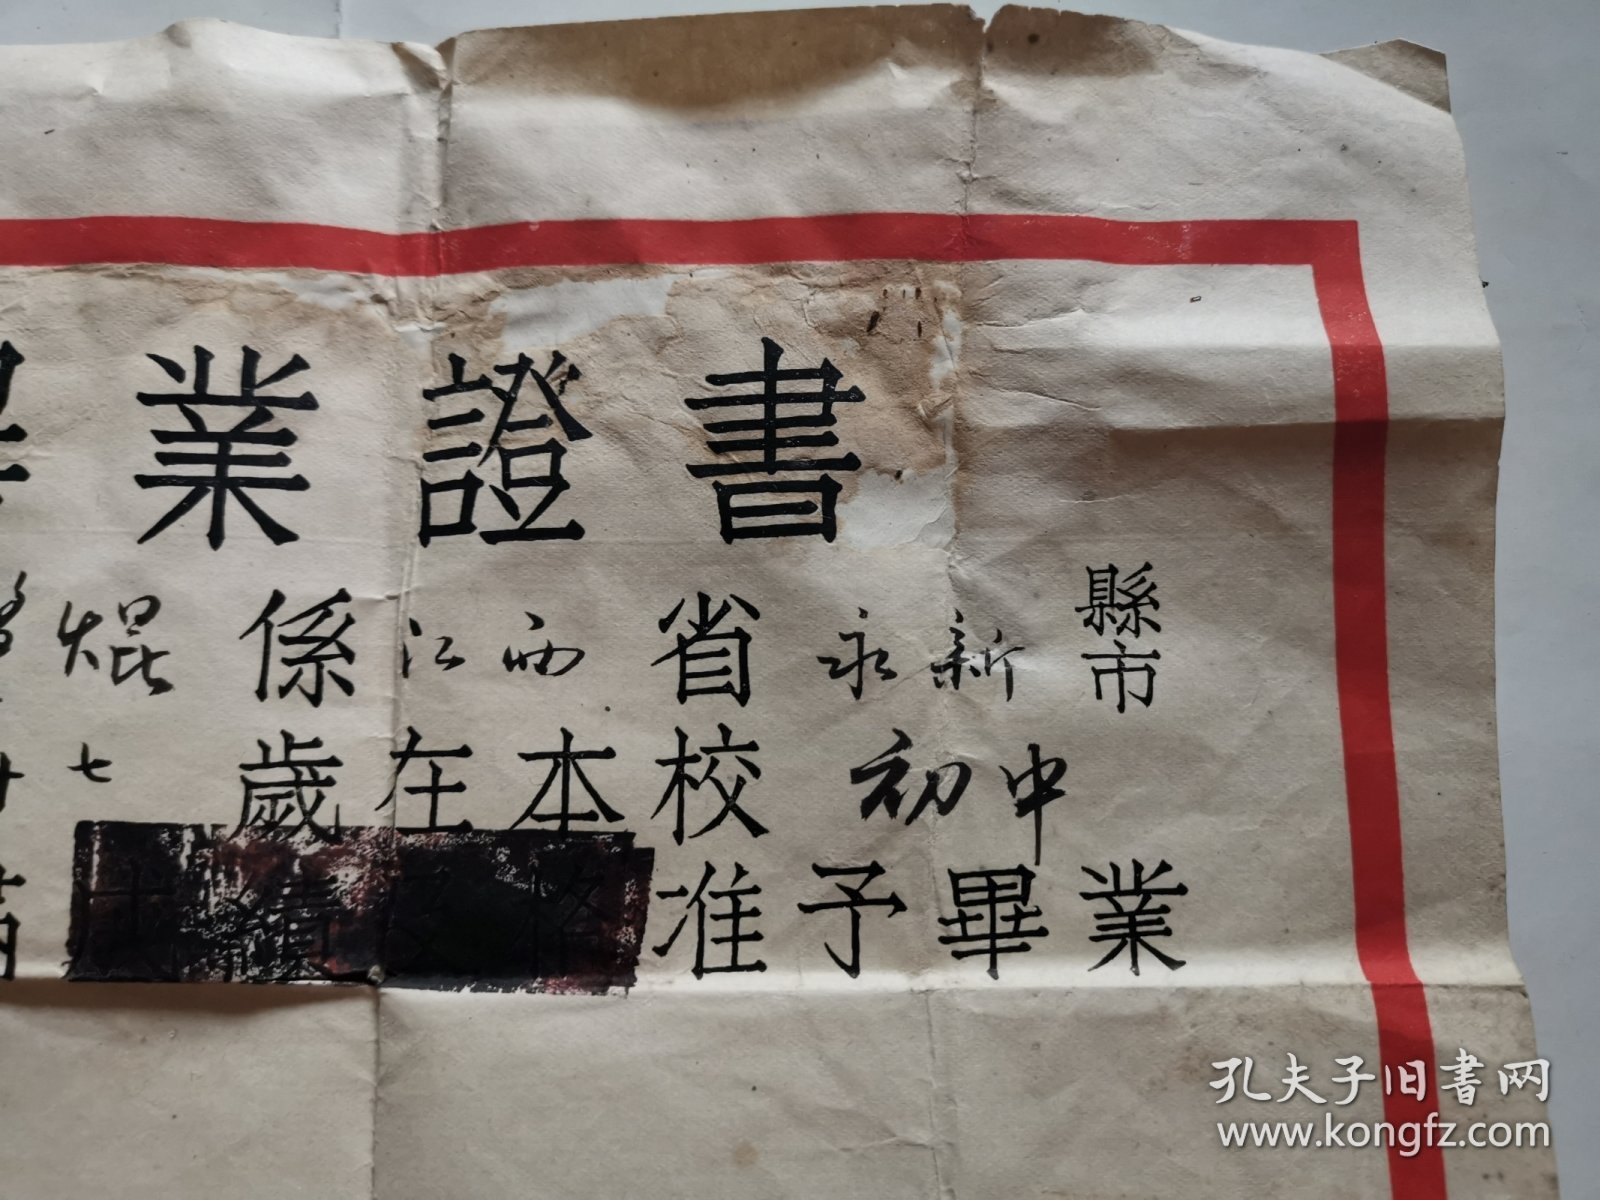 業證書
焜係江西省永新縣市
七歲在本校初中
成績及格准予畢業
孔夫子旧書网
www.kongfz.com